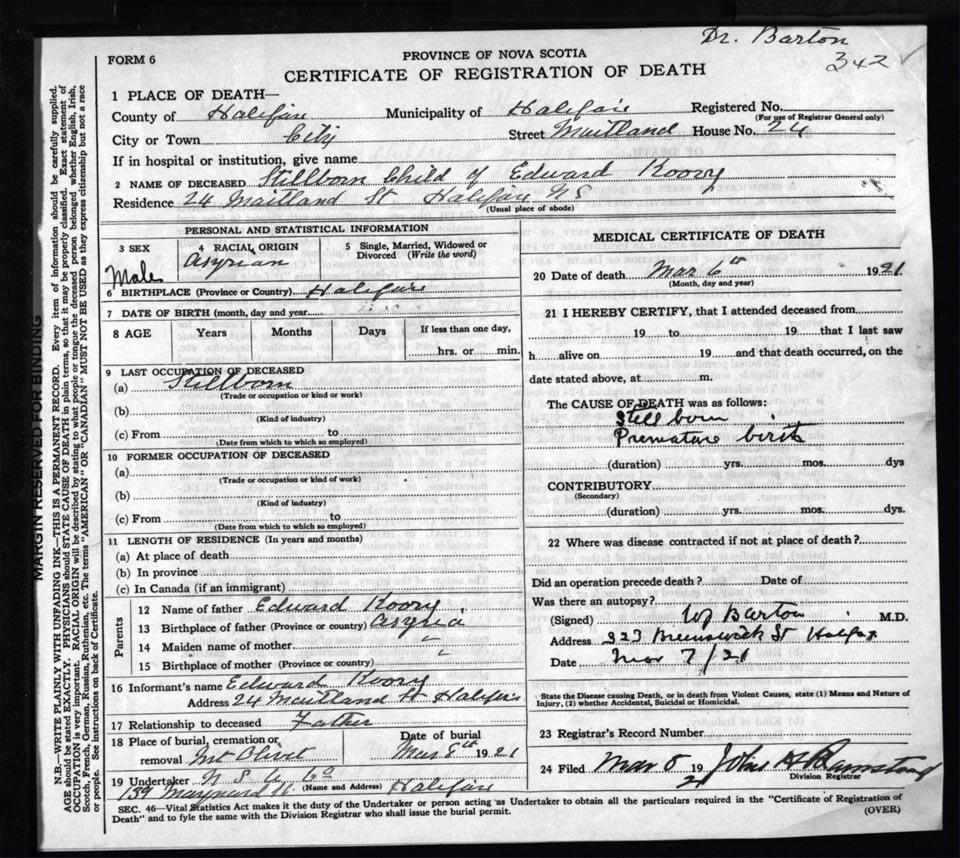 Dr. Barton
342
FORM 6
PROVINCE OF NOVA SCOTIA
CERTIFICATE OF REGISTRATION OF DEATH
1 PLACE OF DEATH—
County of Halifax Municipality of Halifax Registered No.
(For use of Registrar General only)
City or Town City Street Maitland House No. 24
If in hospital or institution, give name
2 NAME OF DECEASED Stillborn Child of Edward Koory
Residence 24 Maitland St Halifax NS
(Usual place of abode)
PERSONAL AND STATISTICAL INFORMATION
3 SEX 4 RACIAL ORIGIN 5 Single, Married, Widowed or Divorced (Write the word)
Male Asyrian
6 BIRTHPLACE (Province or Country) Halifax
7 DATE OF BIRTH (month, day and year)
8 AGE Years Months Days If less than one day,
hrs. or min.
9 LAST OCCUPATION OF DECEASED
(a) Stillborn
(Trade or occupation or kind or work)
(b)
(Kind of industry)
(c) From to
(Date from which to which so employed)
10 FORMER OCCUPATION OF DECEASED
(a)
(Trade or occupation or kind of work)
(b)
(Kind of industry)
(c) From to
(Date from which to which so employed)
11 LENGTH OF RESIDENCE (In years and months)
(a) At place of death
(b) In province
(c) In Canada (if an immigrant)
Parents
12 Name of father Edward Koory
13 Birthplace of father (Province or country) Asyria
14 Maiden name of mother
15 Birthplace of mother (Province or country)
16 Informant's name Edward Koory
Address 24 Maitland St Halifax
17 Relationship to deceased Father
18 Place of burial, cremation or removal Mt Olivet
Date of burial Mar 8th 1921
19 Undertaker N S U Co
(Name and Address)
139 Maynard St. Halifax
MEDICAL CERTIFICATE OF DEATH
20 Date of death Mar 6th 1921
(Month, day and year)
21 I HEREBY CERTIFY, that I attended deceased from
19 to 19 that I last saw
h alive on 19 and that death occurred, on the
date stated above, at m.
The CAUSE OF DEATH was as follows:
Still born
Premature birth
(duration) yrs. mos. dys
CONTRIBUTORY
(Secondary)
(duration) yrs. mos. dys.
22 Where was disease contracted if not at place of death?
Did an operation precede death? Date of
Was there an autopsy?
(Signed) Barton M.D.
Address 323 Brunswick St Halifax
Date Mar 7/21
State the Disease causing Death, or in death from Violent Causes, state (1) Means and Nature of
Injury, (2) whether Accidental, Suicidal or Homicidal.
23 Registrar's Record Number
24 Filed Mar 8 1921 John
Division Registrar
SEC. 46—Vital Statistics Act makes it the duty of the Undertaker or person acting as Undertaker to obtain all the particulars required in the "Certificate of Registration of
Death" and to fyle the same with the Division Registrar who shall issue the burial permit.
(OVER)
MARGIN RESERVED FOR BINDING
N.B.—WRITE PLAINLY WITH UNFADING INK—THIS IS A PERMANENT RECORD. Every item of information should be carefully supplied.
AGE should be stated EXACTLY. PHYSICIANS should STATE CAUSE OF DEATH in plain terms, so that it may be properly classified. Exact statement of
OCCUPATION is very important. RACIAL ORIGIN will be described by stating to what people or tongue the deceased person belonged whether English, Irish,
Scotch, French, German, Russian, Ruthenian, etc. The terms "AMERICAN" OR "CANADIAN" MUST NOT BE USED as they express citizenship but not a race
or people. See instructions on back of Certificate.